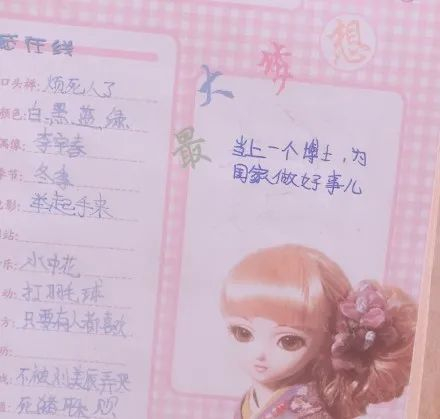 在线
口头禅: 烦死人了
颜色: 白、黑、蓝、绿
偶像: 李宇春
季节: 冬季
电影: 举起手来
网站:
乐: 水中花
动: 打羽毛球
方: 只要有人都喜欢
助:
不被刘美辰弄哭
死猪
最大梦想
当上一个博士,为
国家做好事儿